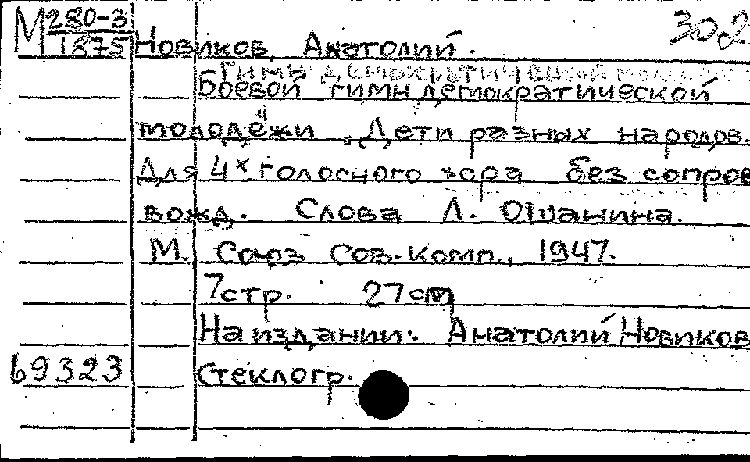 М 280-3 30.2
1875 Новиков, Анатолий.
Гимн демократической
Боевой гимн демократической
молодёжи "Дети разных народов.
Для 4х голосного хора без сопров
вожд. Слова Л. Ошанина.
М. Союз Сов. Комп., 1947.
7 стр. 27 см
На издании: Анатолий Новиков
69323 Стеклогр.